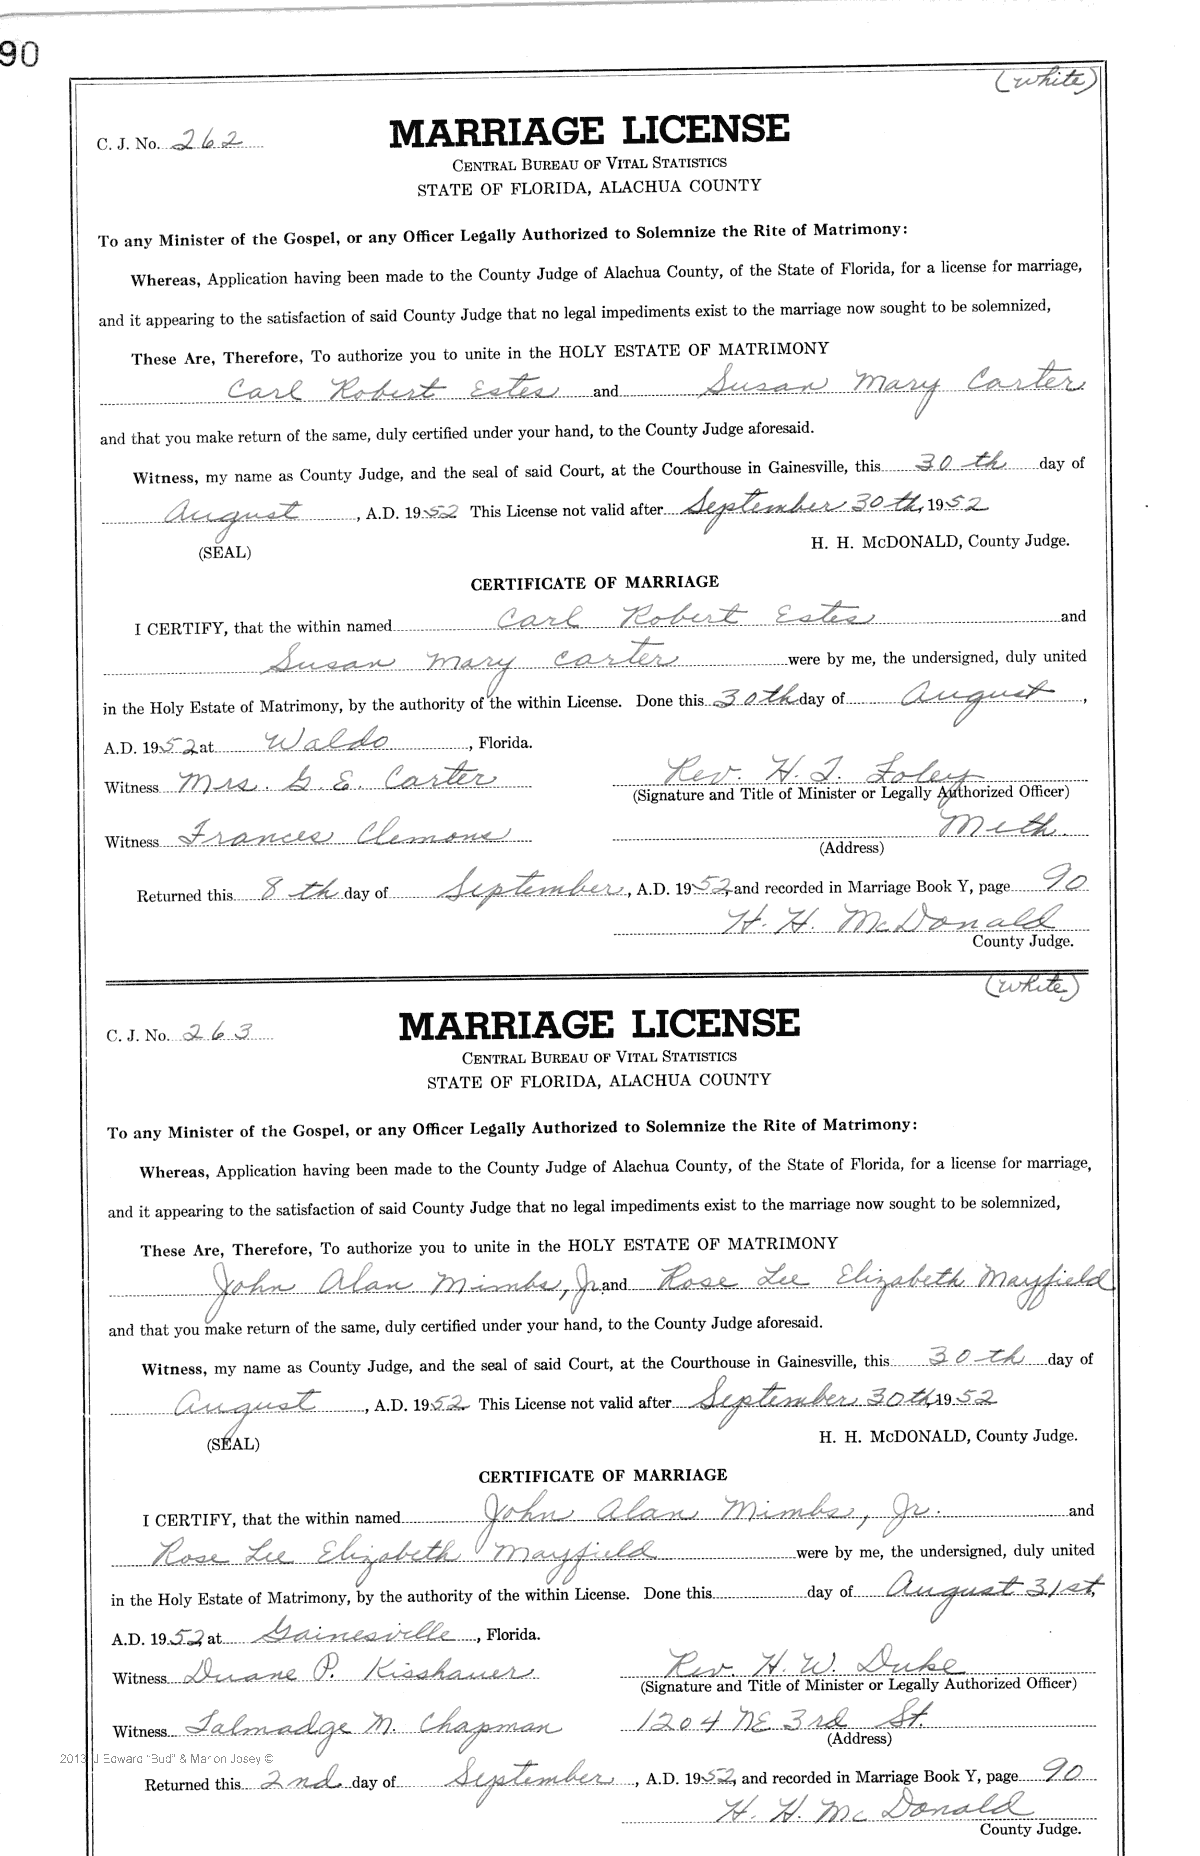 90
(White)
C. J. No. 262
MARRIAGE LICENSE
CENTRAL BUREAU OF VITAL STATISTICS
STATE OF FLORIDA, ALACHUA COUNTY
To any Minister of the Gospel, or any Officer Legally Authorized to Solemnize the Rite of Matrimony:
Whereas, Application having been made to the County Judge of Alachua County, of the State of Florida, for a license for marriage,
and it appearing to the satisfaction of said County Judge that no legal impediments exist to the marriage now sought to be solemnized,
These Are, Therefore, To authorize you to unite in the HOLY ESTATE OF MATRIMONY
Carl Robert Estes and Susan Mary Carter
and that you make return of the same, duly certified under your hand, to the County Judge aforesaid.
Witness, my name as County Judge, and the seal of said Court, at the Courthouse in Gainesville, this 30th day of
August, A.D. 1952 This License not valid after September 30th, 1952
(SEAL) H. H. McDONALD, County Judge.
CERTIFICATE OF MARRIAGE
I CERTIFY, that the within named Carl Robert Estes and
Susan Mary Carter were by me, the undersigned, duly united
in the Holy Estate of Matrimony, by the authority of the within License. Done this 30th day of August,
A.D. 1952 at Waldo, Florida.
Witness Mrs. G. E. Carter Rev. H. T. Foley
(Signature and Title of Minister or Legally Authorized Officer)
Witness Frances Clemons Meth.
(Address)
Returned this 8th day of September, A.D. 1952, and recorded in Marriage Book Y, page 90
H. H. McDonald
County Judge.
(White)
C. J. No. 263
MARRIAGE LICENSE
CENTRAL BUREAU OF VITAL STATISTICS
STATE OF FLORIDA, ALACHUA COUNTY
To any Minister of the Gospel, or any Officer Legally Authorized to Solemnize the Rite of Matrimony:
Whereas, Application having been made to the County Judge of Alachua County, of the State of Florida, for a license for marriage,
and it appearing to the satisfaction of said County Judge that no legal impediments exist to the marriage now sought to be solemnized,
These Are, Therefore, To authorize you to unite in the HOLY ESTATE OF MATRIMONY
John Alan Mimbs, Jr. and Rose Lee Elizabeth Mayfield
and that you make return of the same, duly certified under your hand, to the County Judge aforesaid.
Witness, my name as County Judge, and the seal of said Court, at the Courthouse in Gainesville, this 30th day of
August, A.D. 1952 This License not valid after September 30th, 1952
(SEAL) H. H. McDONALD, County Judge.
CERTIFICATE OF MARRIAGE
I CERTIFY, that the within named John Alan Mimbs, Jr. and
Rose Lee Elizabeth Mayfield were by me, the undersigned, duly united
in the Holy Estate of Matrimony, by the authority of the within License. Done this day of August 31st,
A.D. 1952, at Gainesville, Florida.
Witness Duane P. Kisshauer Rev. H. W. Duke
(Signature and Title of Minister or Legally Authorized Officer)
Witness Talmadge M. Chapman 1204 NE 3rd St.
(Address)
2013 J Edward "Bud" & Marion Josey ©
Returned this 2nd day of September, A.D. 1952, and recorded in Marriage Book Y, page 90
H. H. McDonald
County Judge.